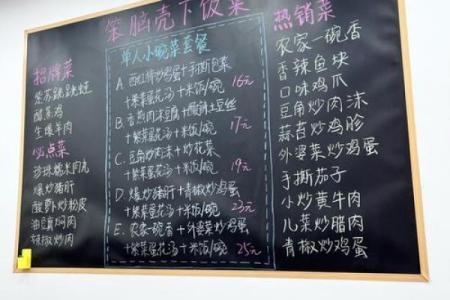 笨脑壳下饭菜
招牌菜
紫苏跳跳蛙
醋蒸鸡
生爆羊肉
必点菜
珍珠糯米肉丸
爆炒猪肝
酸萝卜炒粉皮
油豆腐焖肉
辣椒炒肉
单人小碗菜套餐
A. 西红柿炒鸡蛋+手撕包菜
+紫菜蛋花汤+米饭/碗 16元
B. 香煎肉沫豆腐+酸辣土豆丝
+紫菜蛋花汤+米饭/碗 17元
C. 豆角炒肉沫+炒花菜
+紫菜蛋花汤+米饭/碗 19元
D. 爆炒猪肝+青椒炒鸡蛋
+紫菜蛋花汤+米饭/碗 23元
E. 农家一碗香+外婆菜炒鸡蛋
+紫菜蛋花汤+米饭/碗 25元
热销菜
农家一碗香
香辣鱼块
口味鸡爪
豆角炒肉沫
蒜苔炒鸡胗
外婆菜炒鸡蛋
手撕茄子
小炒黄牛肉
儿菜炒腊肉
青椒炒鸡蛋